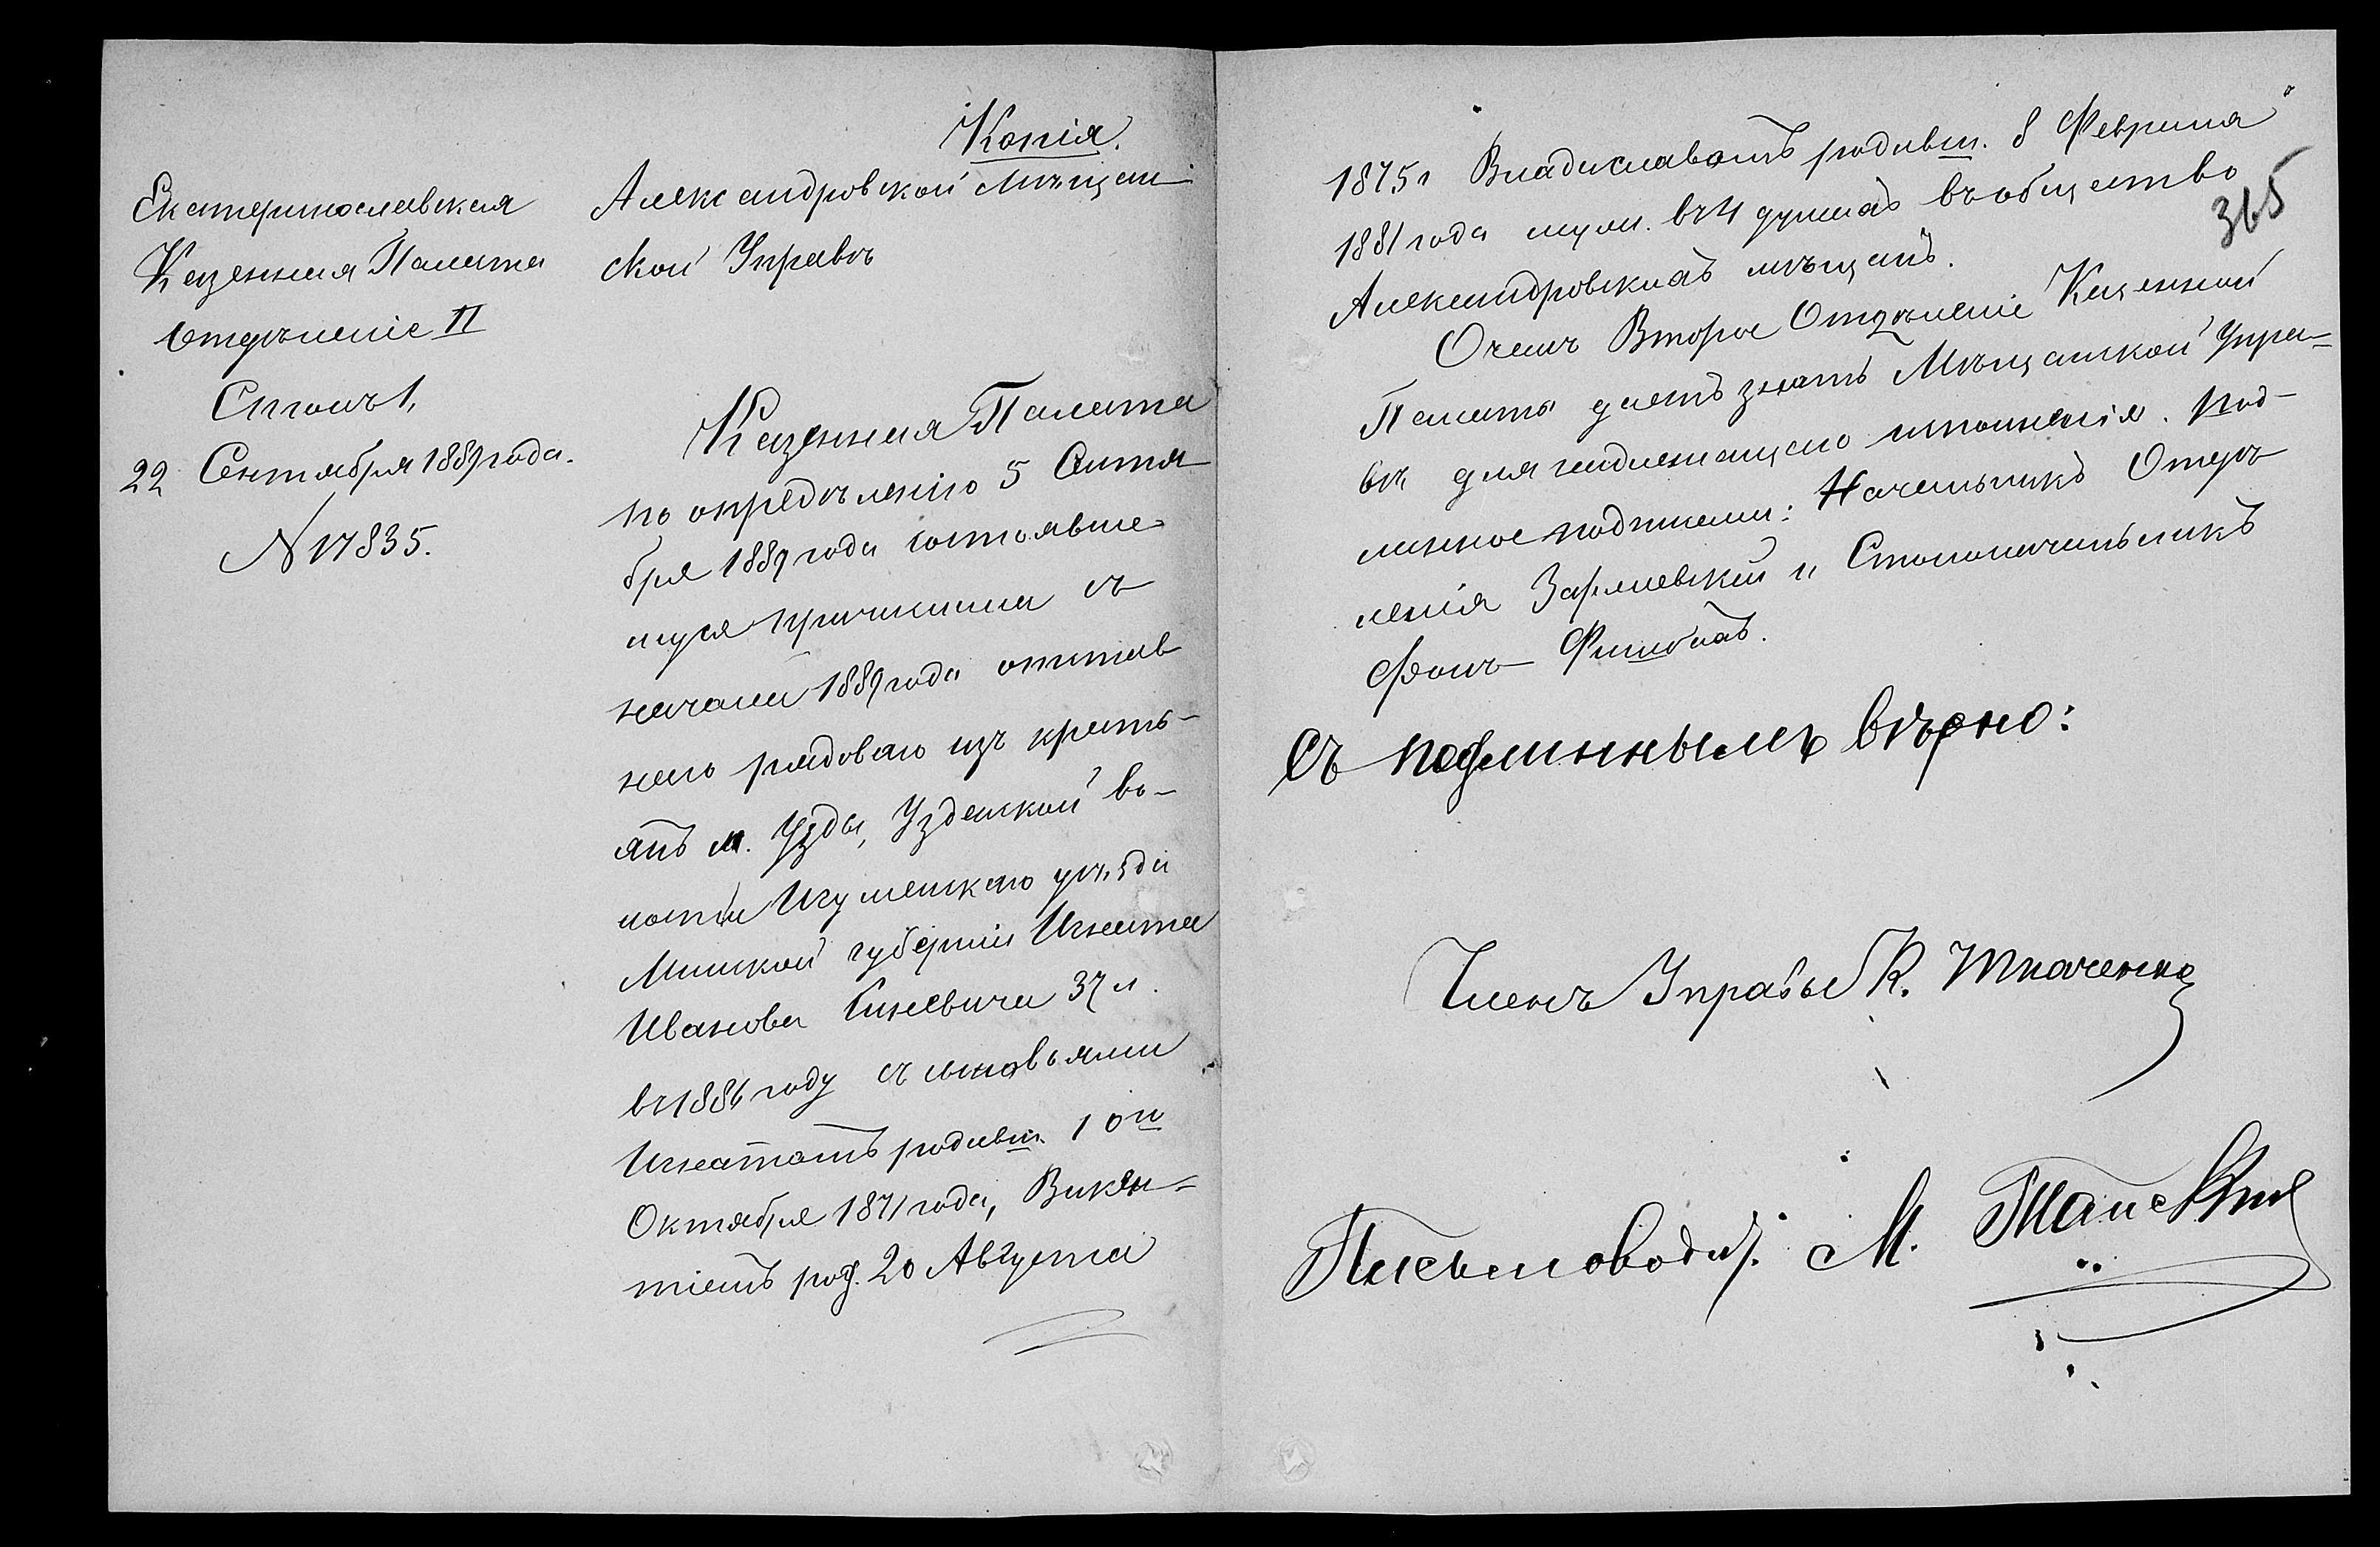 Копія.
Екатеринославская
Казенная Палата
Отдѣленіе II
Столъ 1,
22 Сентября 1889 года.
N 17835.
Александровской Мѣщан
ской Управѣ
Казенная Палата
по опредѣленію 5 Сентя
бря 1889 года состоявше
муся причислила съ
начала 1889 года отстав
наго рядоваго изъ кресть-
янъ м. Узды, Узденской во-
лости Игуменскаго уѣзда
Минской губерніи Игната
Иванова 37 л.
въ 1886 году съ сыновьями
Игнатомъ родивш. 10го
Октября 1871 года, Викен-
тіемъ род. 20 Августа
365
1875 г Владиславомъ родивш. 8 Февраля
1881 года муж. въ 4 душахъ въ общество
Александровскихъ мѣщанъ.
О чемъ Второе Отдѣленіе Казенной
Палаты даетъ знать Мѣщанской Упра-
вѣ для надлежащаго исполненія. Под-
линное подписали: Начальникъ Отдѣ
ленія и Столоначальникъ
Фонъ-
Съ подлиннымъ вѣрно:
Членъ Управы К. Ткаченко
Письмоводит. М.